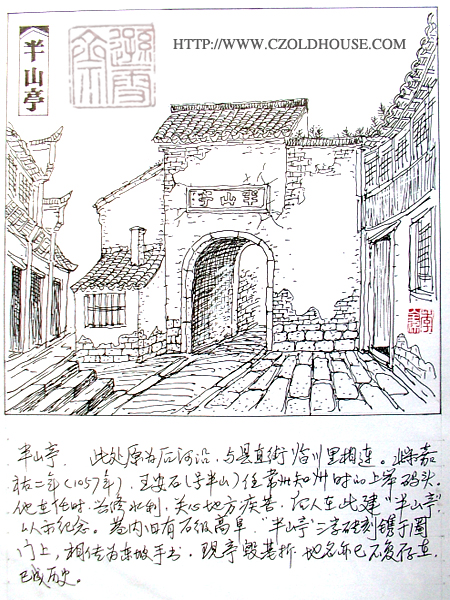 半山亭
HTTP://WWW.CZOLDHOUSE.COM
半山亭
半山亭. 此处原为后河沿,与县直街 临川里相连。北宋嘉
祐二年(1057年),王安石(号半山)任常州知州时的上岸码头。
他在任时,兴修水利,关心地方疾苦,后人在此建"半山亭"
以示纪念。巷内旧有石级高阜,"半山亭"三字砖刻镌于圈
门上,相传为东坡手书,现亭毁巷拆,地名亦已不复存在,
已成历史。